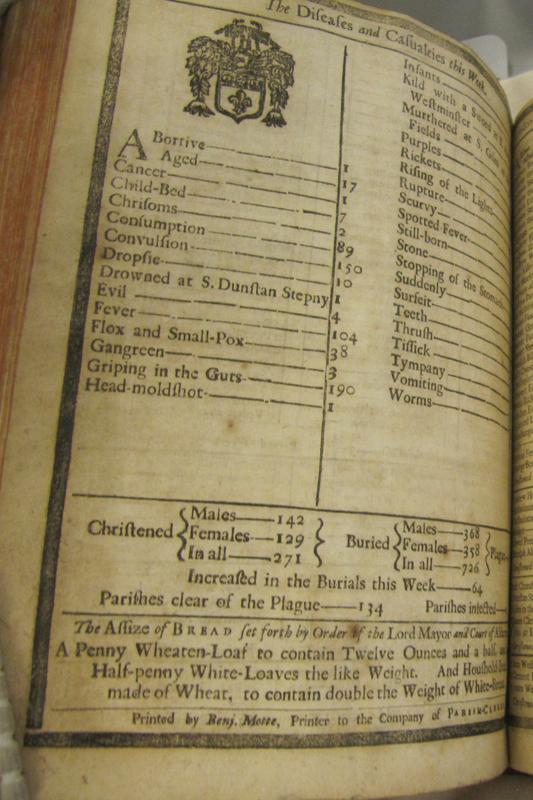 The Diſeaſes and Caſualties this Week.
ABortive 1
Aged 17
Cancer 1
Child-Bed 7
Chriſoms 2
Conſumption 89
Convulſion 150
Dropſie 10
Drowned at S. Dunſtan Stepny 1
Evil 4
Fever 104
Flox and Small-Pox 38
Gangreen 3
Griping in the Guts 190
Head-moldſhot 1
Infants
Kild with a Sword at
Weſtminſter
Murthered at S. Giles
Fields
Purples
Rickets
Riſing of the Lights
Rupture
Scurvy
Spotted Fever
Still-born
Stone
Stopping of the Stomach
Suddenly
Surfeit
Teeth
Thruſh
Tiſſick
Tympany
Vomiting
Worms
Chriſtened { Males 142 Females 129 In all 271 } Buried { Males 368 Females 358 In all 726 } Plague
Increaſed in the Burials this Week 64
Pariſhes clear of the Plague 134 Pariſhes infected
The Aſſize of BREAD ſet forth by Order of the Lord Mayor and Court of
A Penny Wheaten-Loaf to contain Twelve Ounces and a half,
Half-penny White-Loaves the like Weight. And Houſhold
made of Wheat, to contain double the Weight of White-Bread.
Printed by Benj. Motte, Printer to the Company of